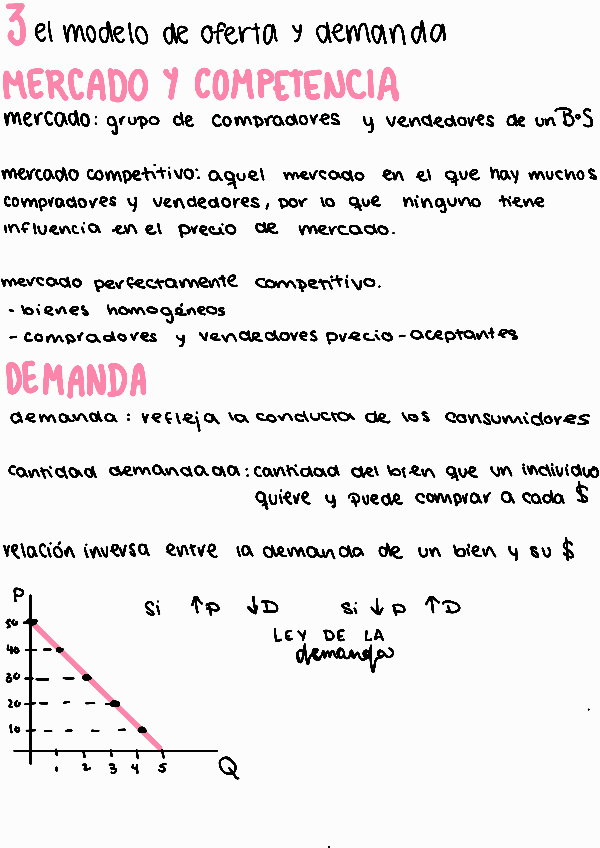 3 el modelo de oferta y demanda
MERCADO Y COMPETENCIA
mercado: grupo de compradores y vendedores de un B°S
mercado competitivo: aquel mercado en el que hay muchos
compradores y vendedores, por lo que ninguno tiene
influencia en el precio de mercado.
mercado perfectamente competitivo.
- bienes homogéneos
- compradores y vendedores precio-aceptantes
DEMANDA
demanda: refleja la conducta de los consumidores
cantidad demandada: cantidad del bien que un individuo
quiere y puede comprar a cada $
relación inversa entre la demanda de un bien y su $
P
Si ↑P ↓D Si ↓P ↑D
LEY DE LA
demanda
50
40
30
20
10
1 2 3 4 5 Q